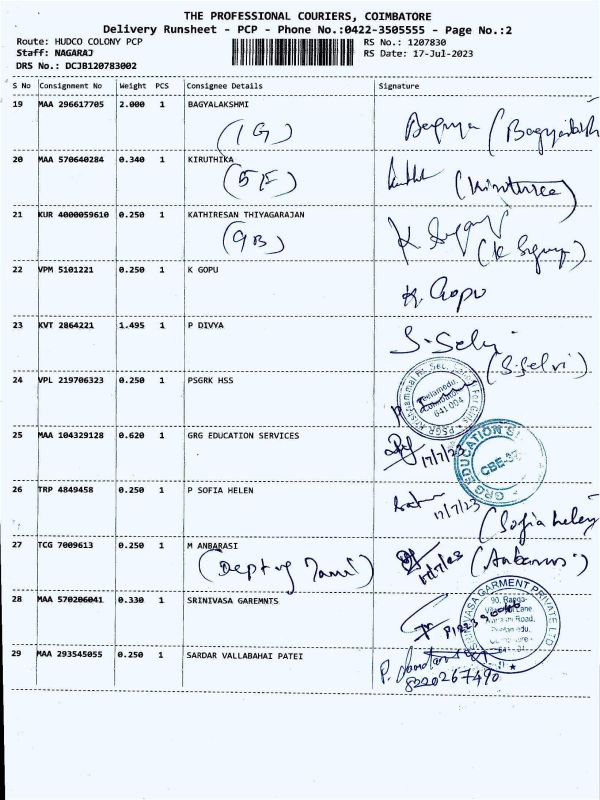 THE PROFESSIONAL COURIERS, COIMBATORE
Delivery Runsheet - PCP - Phone No.:0422-3505555 - Page No.:2
Route: HUDCO COLONY PCP RS No.: 1207830
Staff: NAGARAJ RS Date: 17-Jul-2023
DRS No.: DCJB120783002
S No Consignment No Weight PCS Consignee Details Signature
19 MAA 296617705 2.000 1 BAGYALAKSHMI
(1G)
20 MAA 570640284 0.340 1 KIRUTHIKA
(5F)
21 KUR 4000059610 0.250 1 KATHIRESAN THIYAGARAJAN
(9B)
22 VPM 5101221 0.250 1 K GOPU
K. Gopu
23 KVT 2864221 1.495 1 P DIVYA
S. Selvi
(S. Selvi)
24 VPL 219706323 0.250 1 PSGRK HSS
641 004
25 MAA 104329128 0.620 1 GRG EDUCATION SERVICES
17/7/23
GRG EDUCATION
26 TRP 4849458 0.250 1 P SOFIA HELEN
17/7/23
(Sofia helen
27 TCG 7009613 0.250 1 M ANBARASI
(Dept of Tamil)
28 MAA 570206041 0.330 1 SRINIVASA GAREMNTS
GARMENT PRIVATE LTD
29 MAA 293545055 0.250 1 SARDAR VALLABAHAI PATEI
8220267490